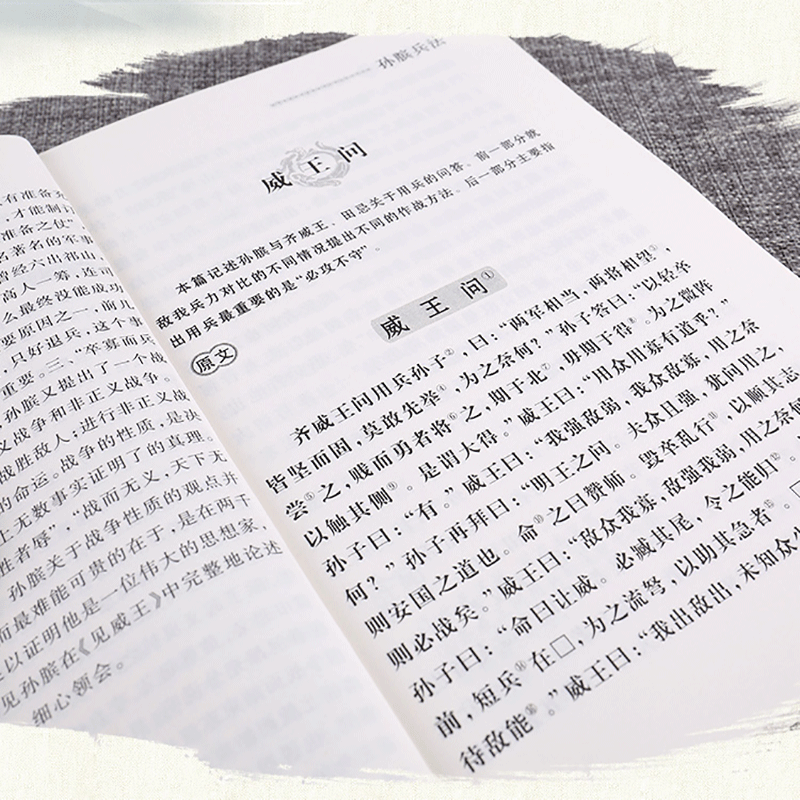 有准备充
，才能制订
准备之仗”
名著名的军事
曾经六出祁山
高人一筹，连司
么最终没能成功
要原因之一，前几
，只好退兵，这个事
重要。三、“卒寡而兵
孙膑又提出了一个战
义战争和非正义战争。
战胜敌人；进行非正义战
战争的性质，是决
的命运。
上无数事实证明了的真理。
“战而无义，天下无
性者辱”，
孙膑关于战争性质的观点并
而最难能可贵的在于，是在两千
以证明他是一位伟大的思想家、
见孙膑在《见威王》中完整地论述
细心领会。
孙膑兵法
威王问
本篇记述孙膑与齐威王、田忌关于用兵的问答。前一部分就
敌我兵力对比的不同情况提出不同的作战方法。后一部分主要指
出用兵最重要的是“必攻不守”。
威王问①
原文
齐威王问用兵孙子②，曰：“两军相当，两将相望③，
皆坚而固，莫敢先举④，为之奈何？”孙子答曰：“以轻卒
尝⑤之，贱而勇者将⑥之，期于北⑦，毋期于得⑧。为之微阵
以触其侧⑨。是谓大得。”威王曰：“用众用寡有道乎？”
孙子曰：“有。”威王曰：“我强敌弱，我众敌寡，用之奈
何？”孙子再拜曰：“明王之问。夫众且强，犹问用之，
则安国之道也。命⑩之曰赞师。毁卒乱行⑪，以顺其志，
则必战矣。”威王曰：“敌众我寡，敌强我弱，用之奈何？”
孙子曰：“命曰让威。必臧其尾，令之能归⑫。
前，短兵⑭在□，为之流弩，以助其急者⑮。□
待敌能⑯。”威王曰：“我出敌出，未知众少